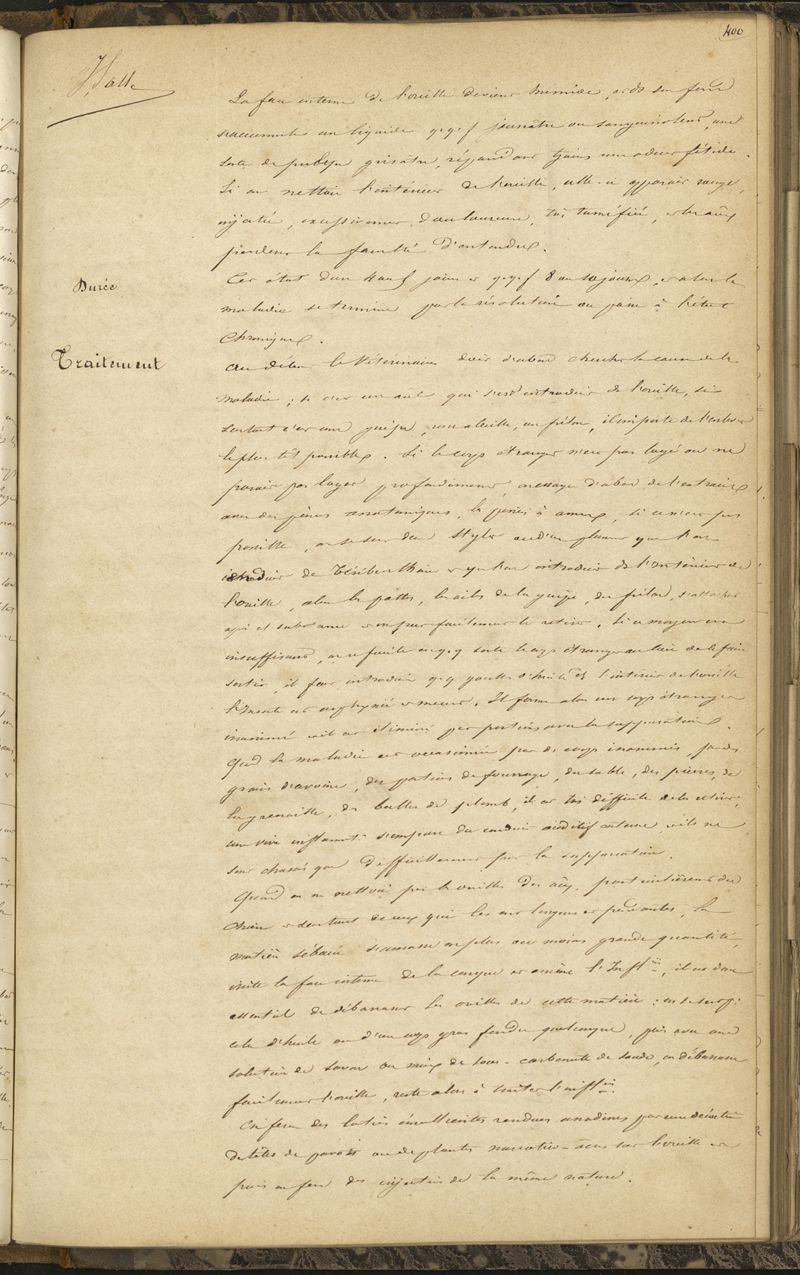 400
La face interne de l'oreille devient humide, et ds son fond
s'accumule un liquide qqf jaunâtre ou sanguinolent, une
sorte de grisâtre, répandant tjours une odeur fétide.
Si on nettoie l'intérieur de l'oreille, elle apparait rouge,
injectée, excessivement douloureuse, très tumifiée, et les aux
perdent la faculté d'entendre.
Durée
Cet état dure 4 ou 5 jours et qqf 8 ou 10 jours, et alors la
maladie se termine par la résolution ou passe à l'état
chronique.
Traitement
Au début le Vétérinaire doit d'abord chercher la cause de la
maladie ; si c'est un qui s'est introduit ds l'oreille, si
surtout c'est une guêpe, une abeille, un frélon, il importe de l'enlever
le plus tôt possible. Si le corps étranger n'est pas logé ou ne
parait pas logé profondément, on essaye d'abord de l'extraire
avec des pinces anatomiques, la pince à anneaux, si ce n'est pas
possible, on se sert d'un stylet ou d'une plume que l'on
enduit de Térébenthine et que l'on introduit ds l'intérieur de
l'oreille, alors les pattes, les ailes de la guêpe, du frélon, s'attachent
à cette substance et on peut facilement le retirer. Si ce moyen est
insuffisant, ou refoule en qq sorte le corps étranger au lieu de le faire
sortir, il faut introduire qq gouttes d'huile ds l'intérieur de l'oreille
l'Insecte est asphyxié et meurt. Il forme alors un corps étranger
inanimé et il est éliminé par portions avec la suppuration.
Qnd la maladie est occasionnée par des corps inanimés, par des
grains d'avoine, des portions de fourrage, du sable, des pierres, de
la grenaille, des balles de plomb, il est très difficile de les retirer,
une vive inflammt s'empare du conduit auditif externe et ils ne
sont chassés que difficilement par la suppuration.
Quand on ne nettoie pas les oreilles des aux, particulièrement des
chiens et surtout de ceux qui les ont longues et pendantes, la
matière sébacée s'amasse en plus ou moins grande quantité,
irrite la face interne de la conque et amène l'Inflon, il est donc
essentiel de débarrasser les oreilles de cette matière : on se sert pr
cela d'huile ou d'un corps gras fondu quelconque, puis avec une
solution de savon ou mieux de sous-carbonate de soude, on débarrasse
facilement l'oreille, reste alors à traiter l'inflon.
On fera des lotions émollientes rendues anodines par une décoction
de têtes de pavots ou de plantes narcotico-âcres sur l'oreille et
puis on fera des injections de la même nature.